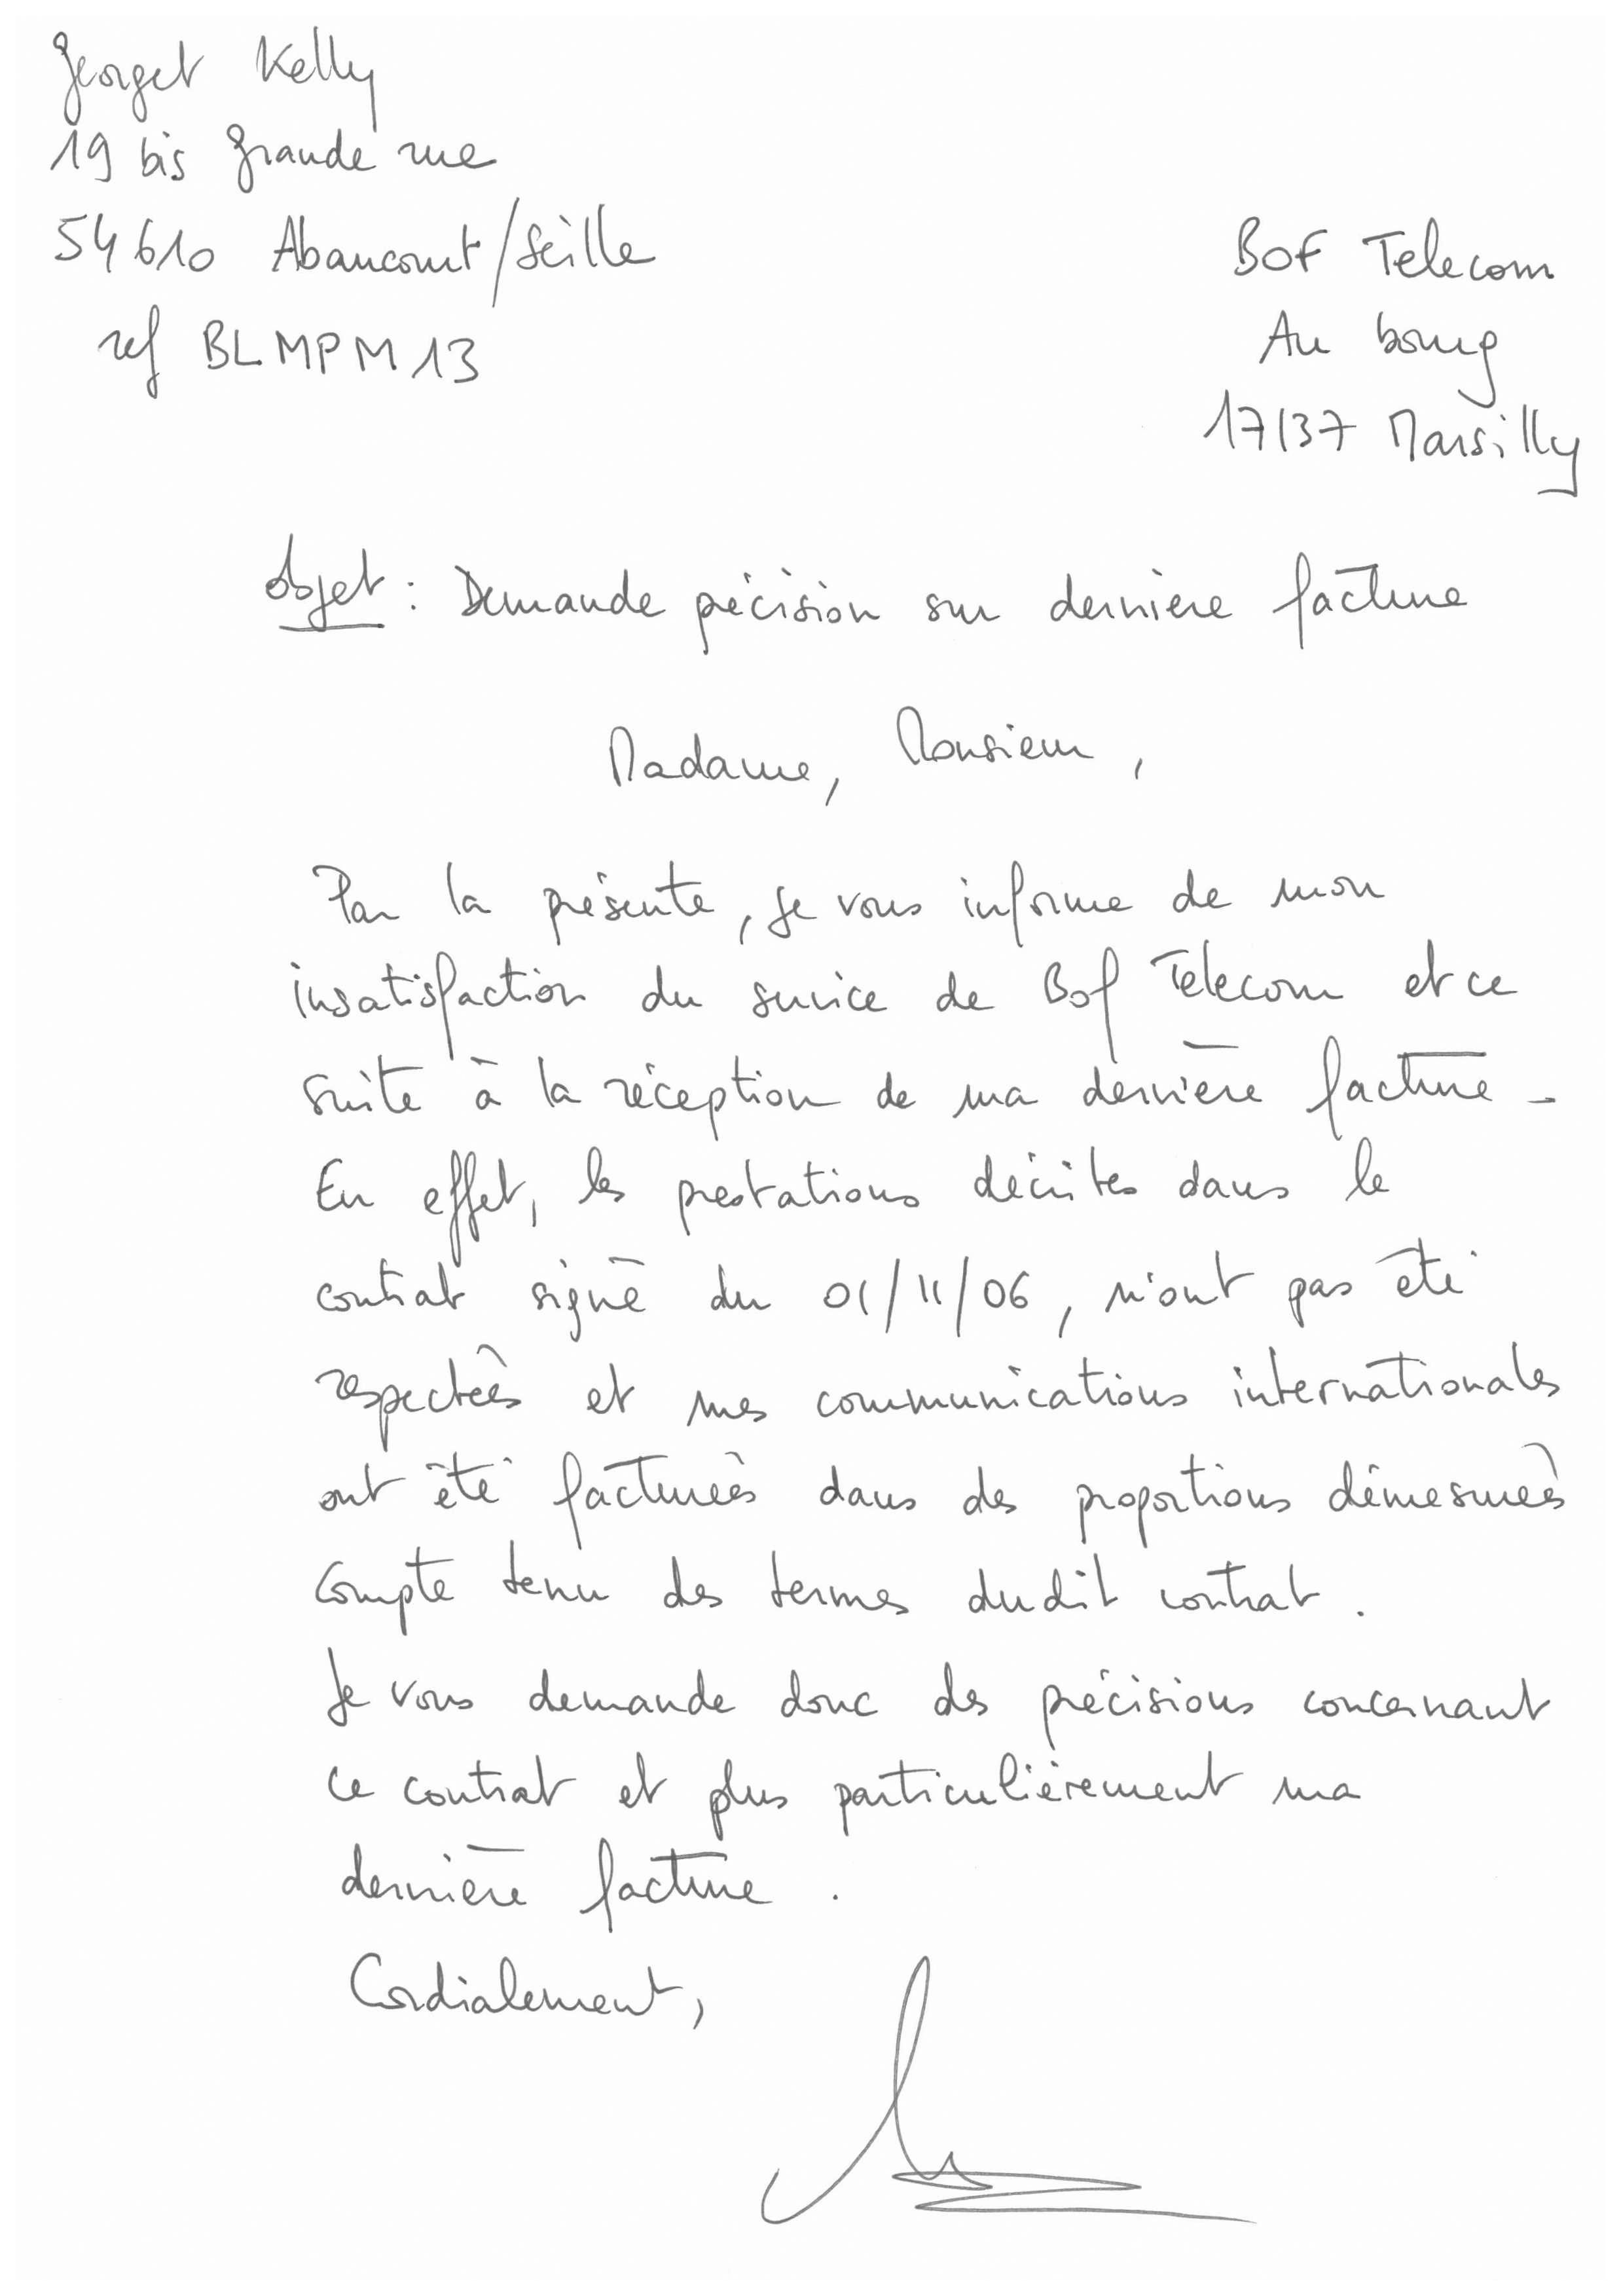 Georget Kelly
19 bis grande rue
54610 Abancourt/Seille
ref BLMPM13
BOF Telecom
Au bourg
17137 Marsilly
Objet : Demande précision sur dernière facture
Madame, Monsieur,
Par la présente, je vous informe de mon
insatisfaction du service de Bof Telecom et ce
suite à la réception de ma dernière facture.
En effet, les prestations décrites dans le
contrat signé du 01/11/06, n'ont pas été
respectées et mes communications internationales
ont été facturées dans des proportions démesurées
compte tenu des termes dudit contrat.
Je vous demande donc des précisions concernant
ce contrat et plus particulièrement ma
dernière facture.
Cordialement,